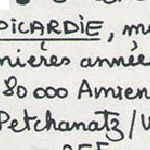 PICARDIE, m
nières année
80 000 Amien
Petchanatz/